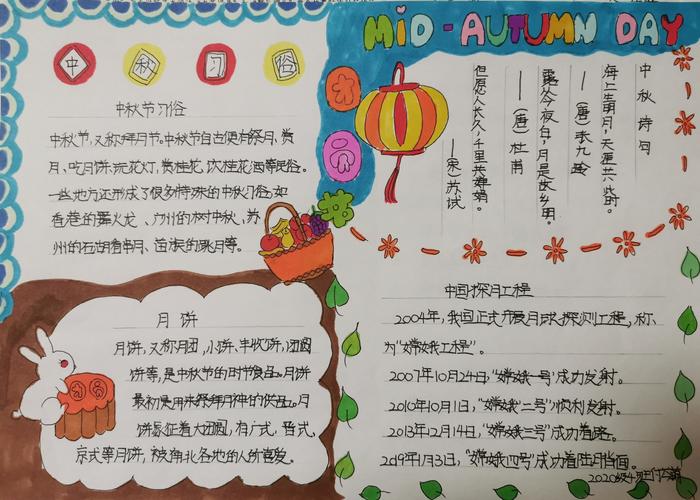 中秋习俗
中秋节习俗
中秋节,又称拜月节。中秋节自古便有祭月、赏
月、吃月饼、玩花灯、赏桂花、饮桂花酒等民俗。
一些地方还形成了很多特殊的中秋习俗,如
香港的舞火龙、广州的树中秋、苏
州的石湖看串月、苗族的跳月等。
月饼
月饼,又称月团、小饼、丰收饼、团圆
饼等,是中秋节的时节食品。月饼
最初是用来祭拜月神的供品。月
饼象征着大团圆,有广式、晋式、
京式等月饼,被南北各地的人所喜爱。
MiD-AUTUMN DAY
中秋诗句
海上生明月,天涯共此时。
——(唐)张九龄
露从今夜白,月是故乡明。
——(唐)杜甫
但愿人长久,千里共婵娟。
——(宋)苏轼
中国探月工程
2004年,我国正式开展月球探测工程,称
为“嫦娥工程”。
2007年10月24日,“嫦娥一号”成功发射。
2010年10月1日,“嫦娥二号”顺利发射。
2013年12月14日,“嫦娥三号”成功着陆。
2019年1月3日,“嫦娥四号”成功着陆月背面。
2020级4班